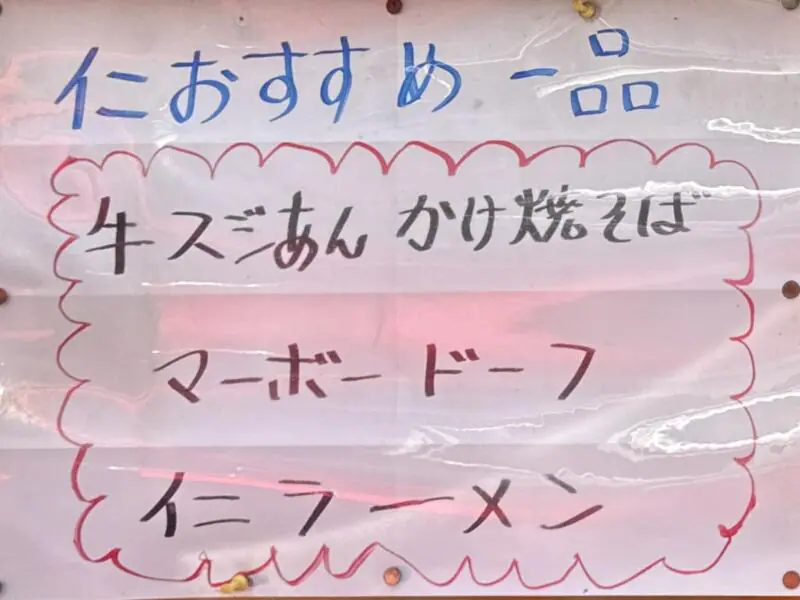 仁おすすめ一品
牛スジあんかけ焼そば
マーボードーフ
仁ラーメン